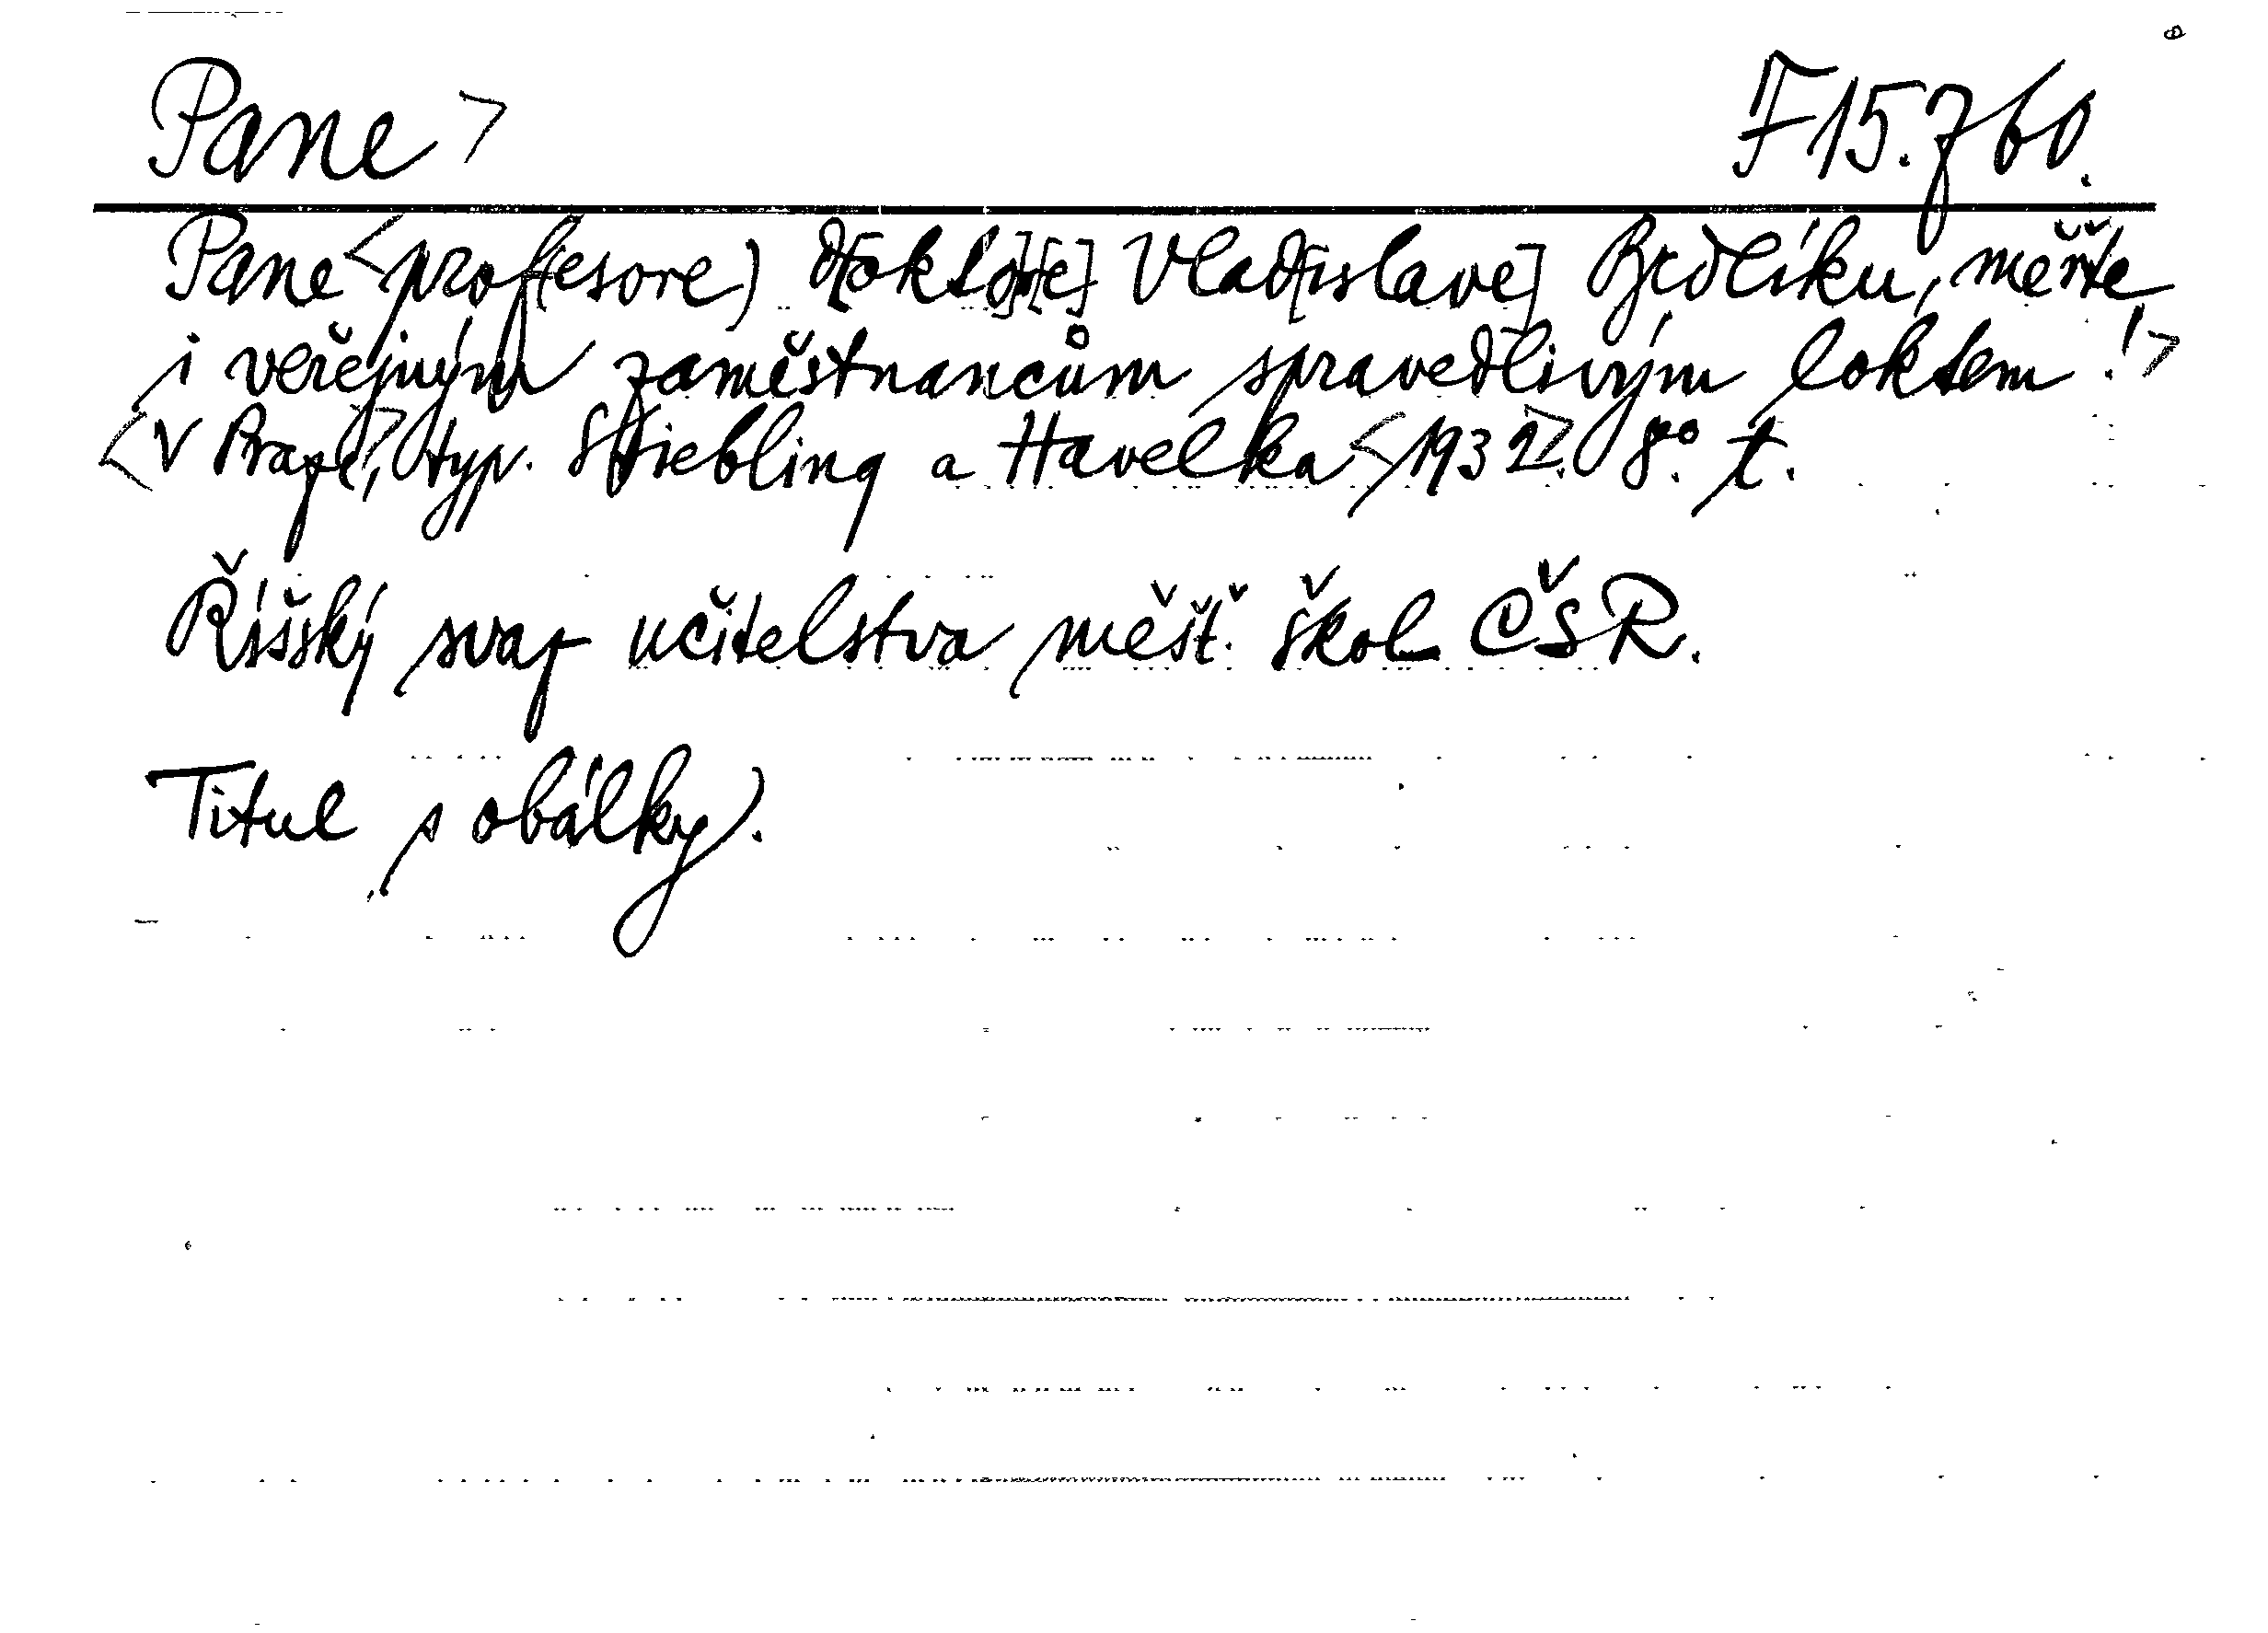 Pane >
F 15.760.
Pane <profesore) d[okto]r[e] Vlad[islave] Brdlíku, měřte
i veřejným zaměstnancům spravedlivým loktem!>
<V Praze,> typ. Stiebling a Havelka <1932>. 8°. t.
Říšský svaz učitelstva měšť. škol ČSR.
Titul s obálky.